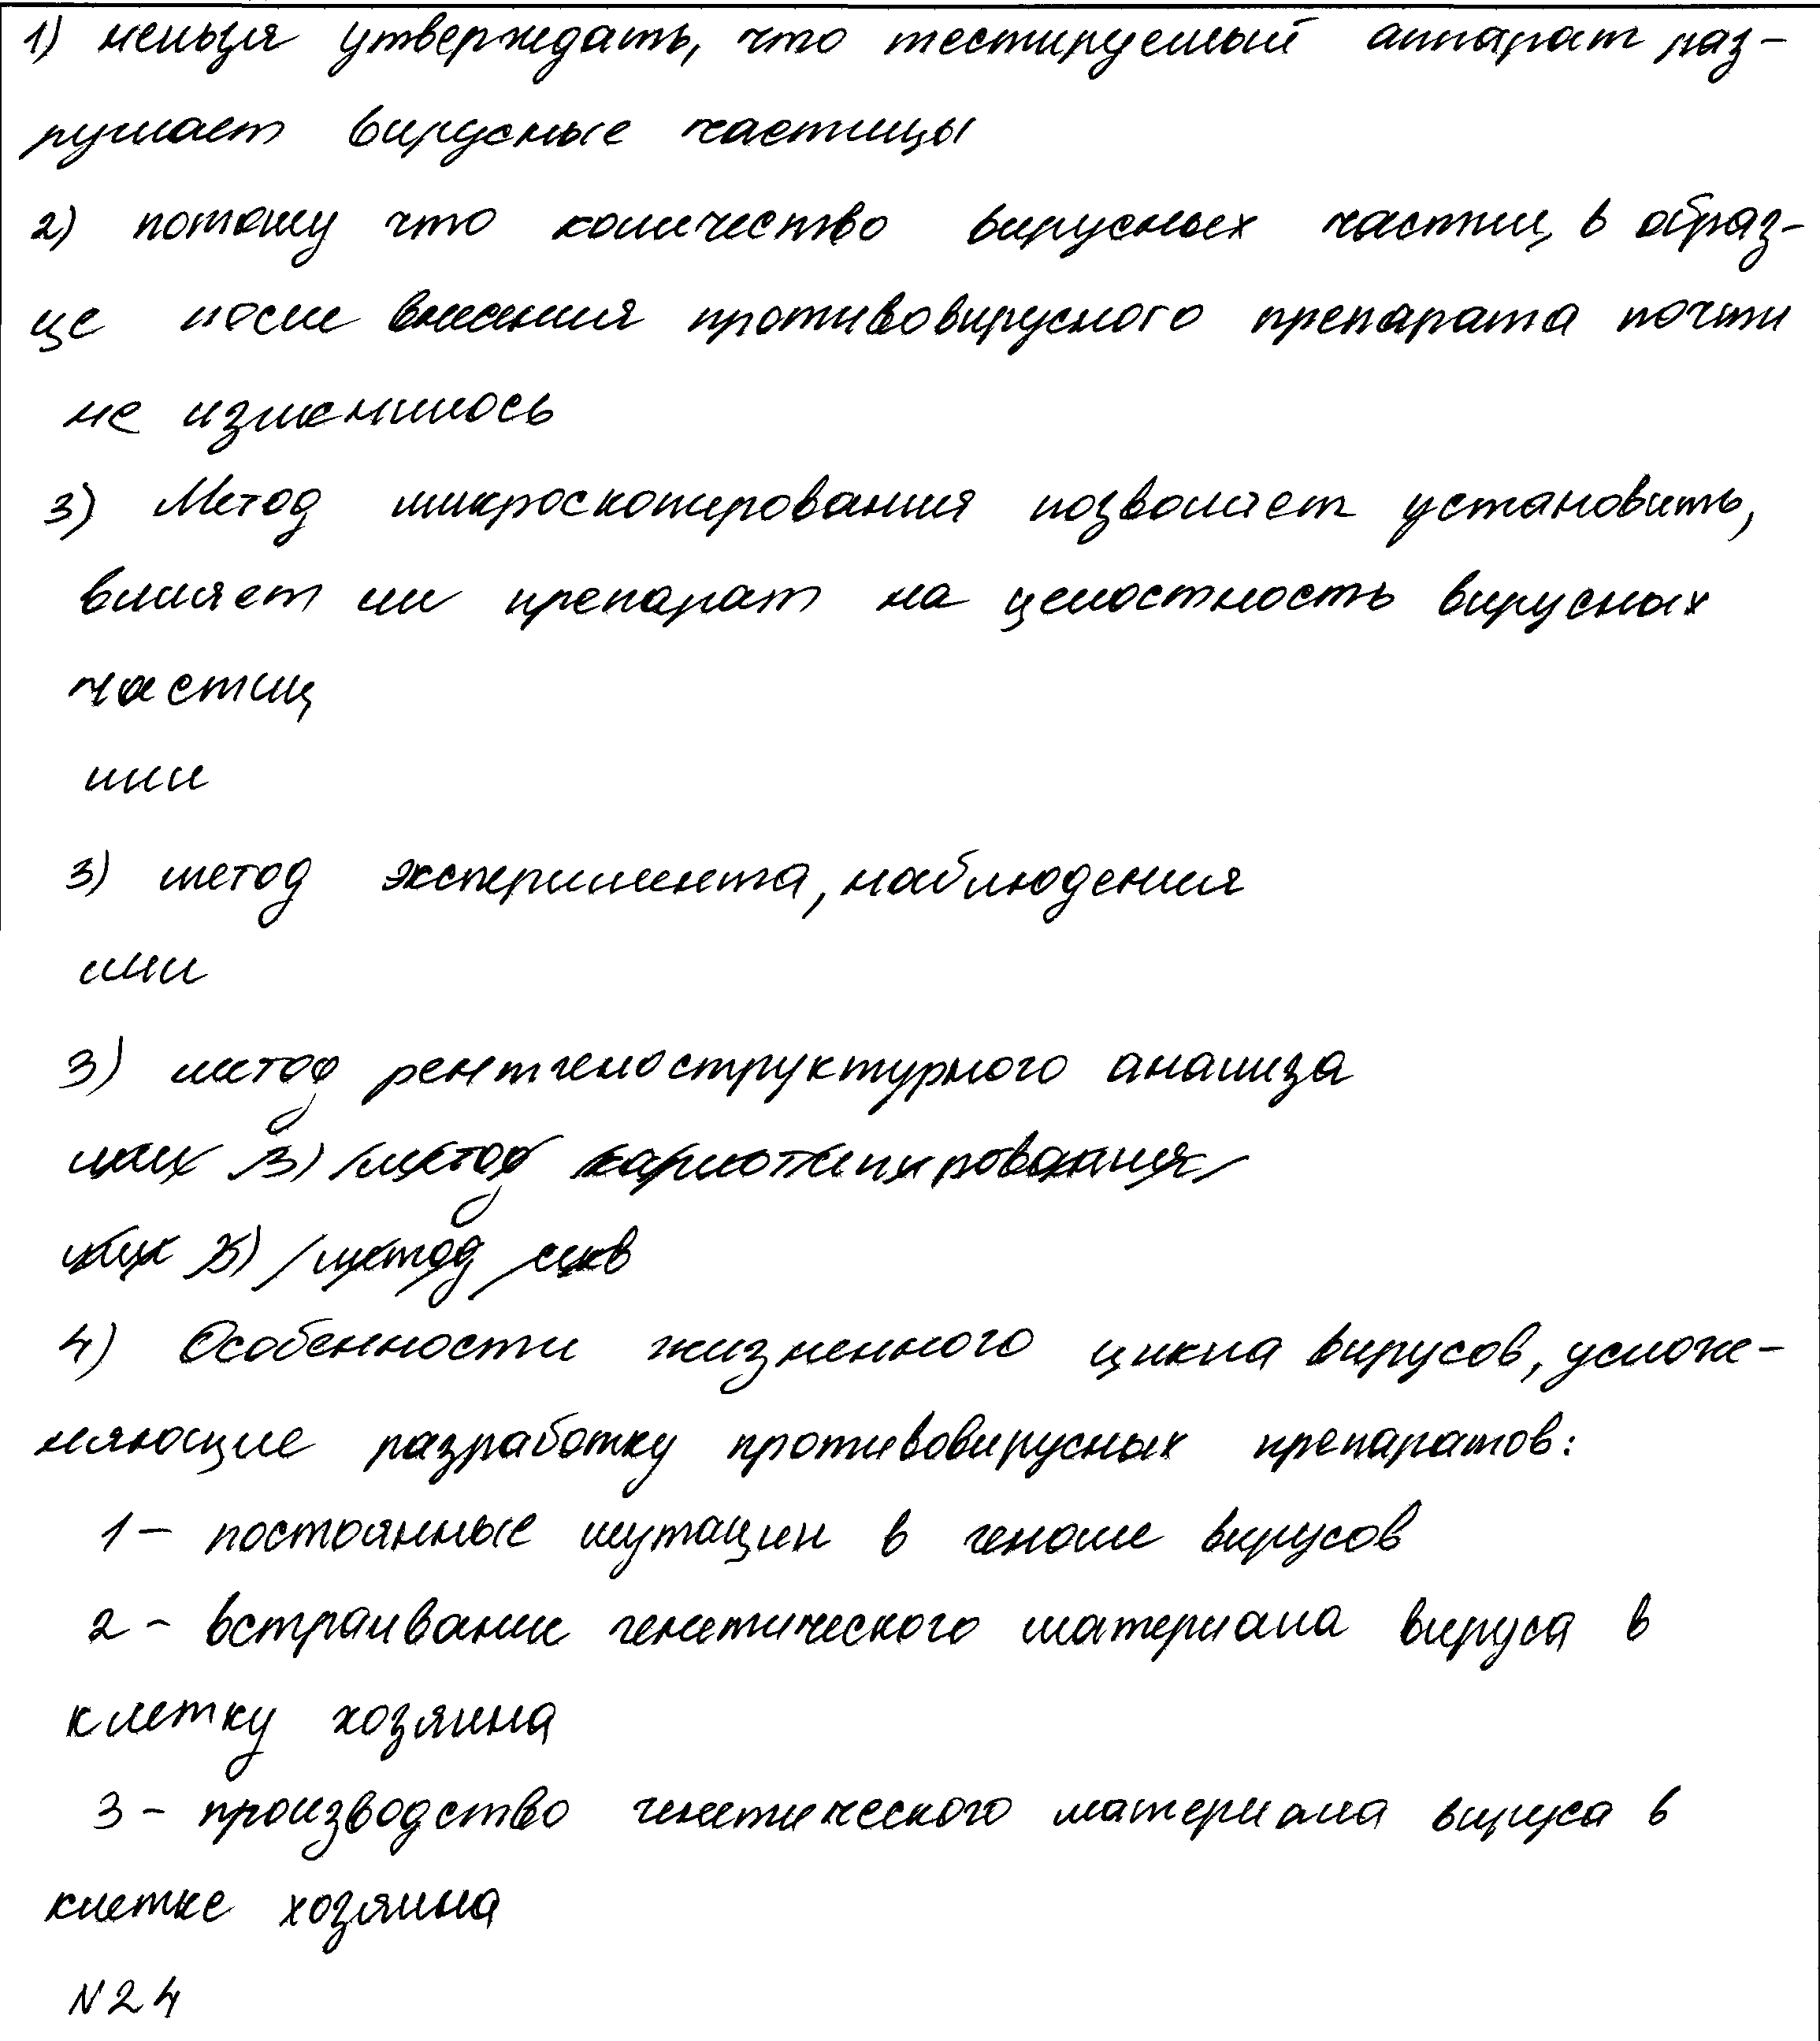 1) нельзя утверждать, что тестируемый аппарат раз-
рушает вирусные частицы
2) потому что количество вирусных частиц в образ-
це после внесения противовирусного препарата почти
не изменилось
3) Метод микроскопирования позволяет установить,
влияет ли препарат на целостность вирусных
частиц
или
3) метод эксперимента, наблюдения
или
3) метод рентгеноструктурного анализа
или 3) метод кариотипирования
или 3) метод
4) Особенности жизненного цикла вирусов, усложе-
няющие разработку противовирусных препаратов:
1 - постоянные мутации в геноме вирусов
2 - встраивание генетического материала вируса в
клетку хозяина
3 - производство генетического материала вируса в
клетке хозяина
N24